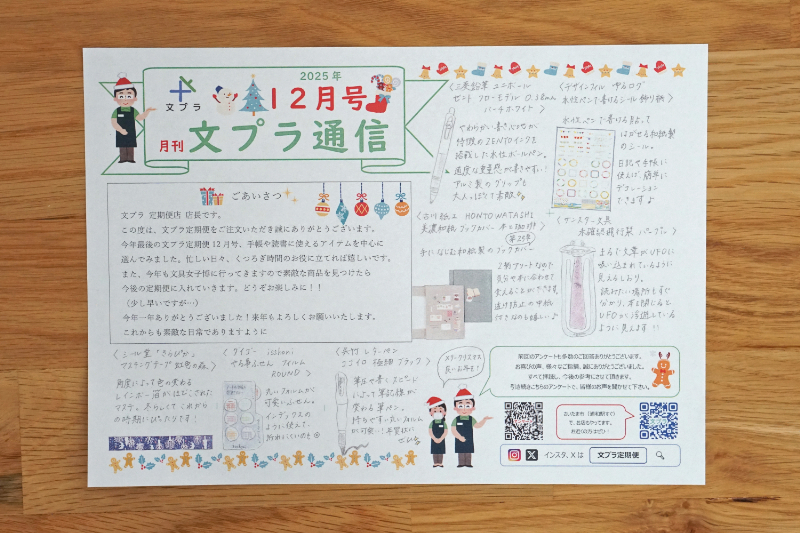 2025年
文プラ
12月号
月刊
文プラ通信
ごあいさつ
文プラ 定期便店 店長です。
この度は、文プラ定期便をご注文いただき誠にありがとうございます。
今年最後の文プラ定期便12月号、手帳や読書に使えるアイテムを中心に
選んでみました。忙しい日々、くつろぎ時間のお役に立てれば嬉しいです。
また、今年も文具女子博に行ってきますので素敵な商品を見つけたら
今後の定期便に入れていきます。どうぞお楽しみに!!
(少し早いですが…)
今年一年ありがとうございました!来年もよろしくお願いいたします。
これからも素敵な日常でありますように
〈三菱鉛筆 ユニボール
ゼント フローモデル 0.38mm
バーチホワイト〉
やわらかい書き心地が
特徴のZENTOインクを
搭載した水性ボールペン。
適度な重量感が書きやすい!
アルミ製のグリップも
大人っぽくて素敵
〈デザインフィル
水性ペンで書けるシール 飾り紙〉
水性ペンで書けて貼って
はがせる和紙製
のシール。
日記や手帳に
使えば、簡単に
デコレーション
できますよ
〈古川紙工 HONTOWATASHI
美濃和紙ブックカバー 本と珈琲〉
手になじむ和紙製のブックカバー
2柄アソートなので
気分や本に合わせて
変えることができます。
〈サンスター文具
まるで文章がUFOに
吸い込まれているように
見えるしおり。
読みたい場所もすぐ
分かり、本を閉じると
UFOが浮遊している
ように見えます!!
〈シール堂「きらぴか」
マスキングテープ 虹色の森〉
角度によって色の変わる
レインボー箔がほどこされた
マステ。きらしくてこれから
の時期にぴったりです!
ROUND〉
丸いフィルムが
可愛いふせん。
インデックスの
ように使えて、
〈呉竹 レターペン
ココイロ 極細 ブラック〉
筆圧や書くスピード
によって筆記線が
変わる筆ペン。
メリークリスマス
良いお年を!
前回のアンケートも多数のご回答ありがとうございます。
お喜びの声、様々なご意見、誠にありがとうございました。
すべて拝読し、今後の参考にさせて頂きます。
引き続きこちらのアンケートで、皆様のお声を聞かせて下さい。
さいたま市(浦和駅すぐ)
で、お店もやってます。
お近くの方はぜひ!
インスタ、Xは
文プラ定期便